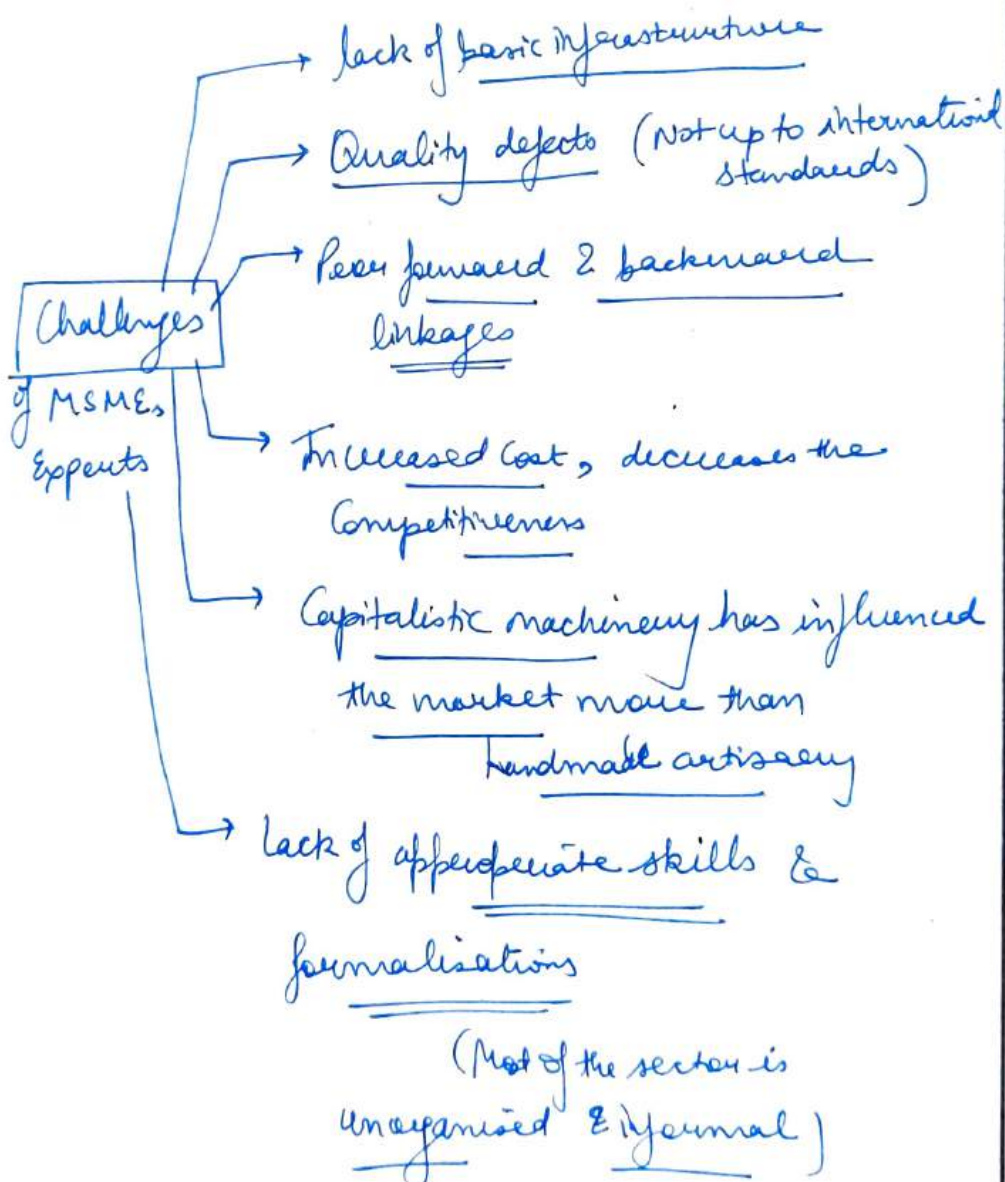 lack of basic infrastructure
Quality defects (Not up to international
standards)
Poor forward & backward
linkages
Challenges
of MSMEs
Exports
Increased Cost, decreases the
Competitiveness
Capitalistic machinery has influenced
the market more than
handmade artisary
Lack of appropriate skills &
formalisations
(Most of the sector is
unorganised & informal)